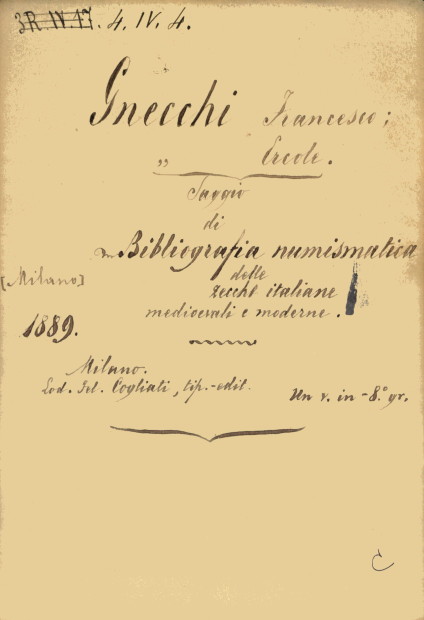 3R.IV.17. 4. IV. 4.
Gnecchi Francesco;
„ Ercole.
Saggio
di
Bibliografia numismatica
delle
zecche italiane
medioevali e moderne.
[Milano]
1889.
Milano.
Lod. Fel. Cogliati, tip.-edit.
Un v. in-8.° gr.
C